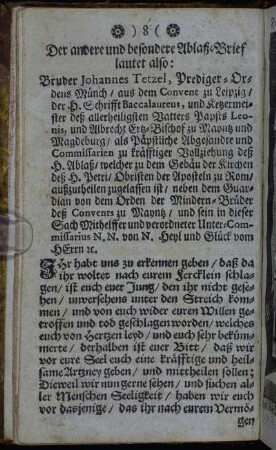 ) 8 (
Der andere und besondere Ablaß-Brief
lautet also:
Bruder Johannes Tetzel, Prediger-Or-
dens Münch / aus dem Convent zu Leipzig /
der H. Schrifft Baccalaureus, und Ketzermei-
ster deß allerheiligsten Vatters Papsts Leo-
nis, und Albrecht Ertz-Bischof zu Mayntz und
Magdeburg / als Päpstliche Abgesandte und
Commissarien zu kräfftiger Vollziehung deß
H. Ablaß / welcher zu dem Gebäu der Kirchen
deß H. Petri / Obristen der Aposteln zu Rom /
außzutheilen zugelassen ist / neben dem Guar-
dian von dem Orden der Mindern-Brüder
deß Convents zu Mayntz / und sein in dieser
Sach Mithelffer und verordneter Unter-Com-
missarius N. N. von N. Heyl und Glück vom
HErrn ꝛc.
Ihr habt uns zu erkennen geben / daß da
ihr woltet nach eurem Fercklein schla-
gen / ist euch euer Jung / den ihr nicht gese-
hen / unversehens unter den Streich kom-
men / und von euch wider euren Willen ge-
troffen und tod geschlagen worden / welches
euch von Hertzen leyd / und euch sehr beküm-
merte / derhalben ist euer Bitt / daß wir
vor eure Seel euch eine kräfftige und heil-
same Artzney geben / und mittheilen sollen:
Dieweil wir nun gerne sehen / und suchen al-
ler Menschen Seeligkeit / haben wir euch
vor dasjenige / das ihr nach eurem Vermö-
gen